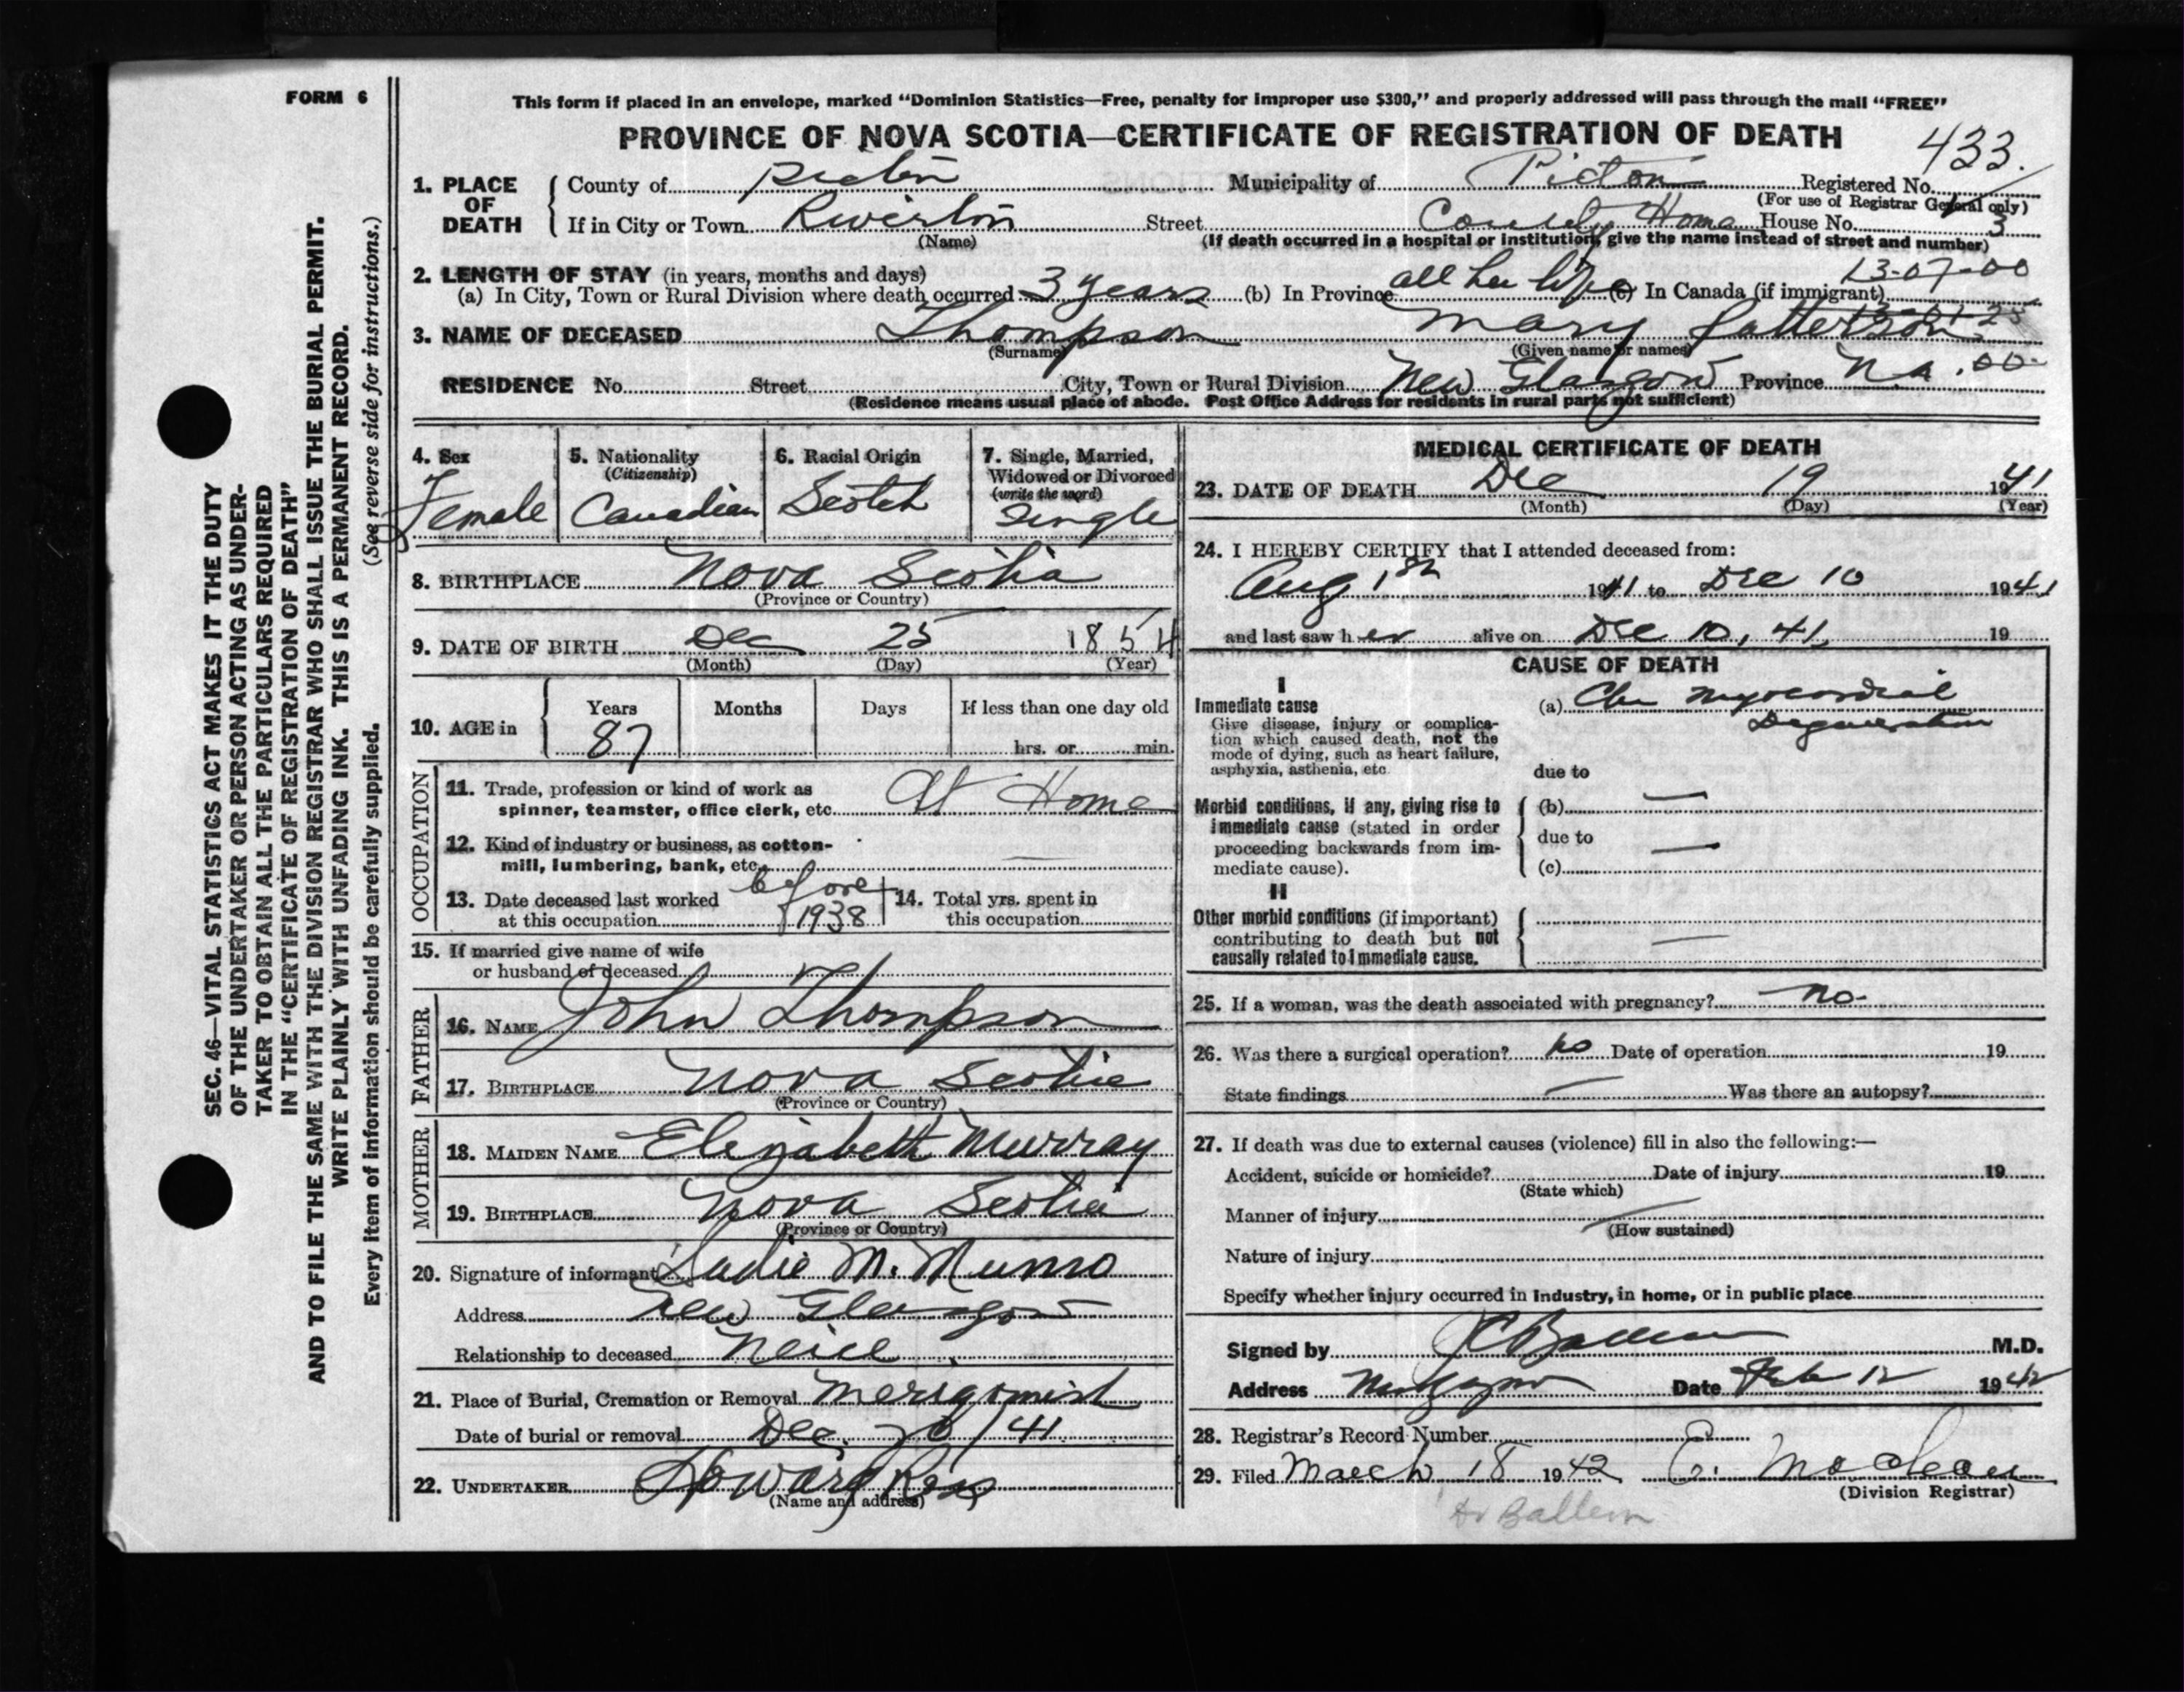 FORM 6
This form if placed in an envelope, marked "Dominion Statistics—Free, penalty for improper use $300," and properly addressed will pass through the mail "FREE"
PROVINCE OF NOVA SCOTIA—CERTIFICATE OF REGISTRATION OF DEATH
433.
1. PLACE OF DEATH
County of Pictou Municipality of Pictou Registered No.
(For use of Registrar General only)
If in City or Town Riverton Street County Home House No. 3
(Name)
(If death occurred in a hospital or institution, give the name instead of street and number)
2. LENGTH OF STAY (in years, months and days)
13-07-00
(a) In City, Town or Rural Division where death occurred 3 years (b) In Province all her life (c) In Canada (if immigrant)
3. NAME OF DECEASED Thompson Mary Patterson
(Surname) (Given name or names)
RESIDENCE No. Street City, Town or Rural Division New Glasgow Province N.S. .00-
(Residence means usual place of abode. Post Office Address for residents in rural parts not sufficient)
4. Sex
Female
5. Nationality
(Citizenship)
Canadian
6. Racial Origin
Scotch
7. Single, Married,
Widowed or Divorced
(write the word)
Single
8. BIRTHPLACE Nova Scotia
(Province or Country)
9. DATE OF BIRTH Dec 25 1854
(Month) (Day) (Year)
10. AGE in
Years Months Days If less than one day old
87 hrs. or min.
OCCUPATION
11. Trade, profession or kind of work as
spinner, teamster, office clerk, etc. At Home
12. Kind of industry or business, as cotton-
mill, lumbering, bank, etc. —
13. Date deceased last worked
at this occupation before 1938
14. Total yrs. spent in
this occupation
15. If married give name of wife
or husband of deceased
FATHER
16. NAME John Thompson
17. BIRTHPLACE Nova Scotia
(Province or Country)
MOTHER
18. MAIDEN NAME Elizabeth Murray
19. BIRTHPLACE Nova Scotia
(Province or Country)
20. Signature of informant Sadie M. Munro
Address New Glasgow
Relationship to deceased Neice
21. Place of Burial, Cremation or Removal Merigomish
Date of burial or removal Dec. 20/41
22. UNDERTAKER Howard Ross
(Name and address)
MEDICAL CERTIFICATE OF DEATH
23. DATE OF DEATH Dec 19 1941
(Month) (Day) (Year)
24. I HEREBY CERTIFY that I attended deceased from:
Aug 1st 1941 to Dec 10 1941
and last saw her alive on Dec 10, 41, 19
CAUSE OF DEATH
I
Immediate cause
Give disease, injury or complica-
tion which caused death, not the
mode of dying, such as heart failure,
asphyxia, asthenia, etc.
(a) Chr Myocardial
Degeneration
due to
Morbid conditions, if any, giving rise to
immediate cause (stated in order
proceeding backwards from im-
mediate cause).
(b) —
due to —
(c)
II
Other morbid conditions (if important)
contributing to death but not
causally related to immediate cause.
—
25. If a woman, was the death associated with pregnancy? no
26. Was there a surgical operation? no Date of operation 19
State findings — Was there an autopsy?
27. If death was due to external causes (violence) fill in also the following:—
Accident, suicide or homicide? Date of injury 19
(State which)
Manner of injury
(How sustained)
Nature of injury
Specify whether injury occurred in industry, in home, or in public place
Signed by JC Ballem M.D.
Address N Glasgow Date Feb 12 1942
28. Registrar's Record Number
29. Filed March 18 1942 E. MacLean
(Division Registrar)
Dr Ballem
SEC. 46—VITAL STATISTICS ACT MAKES IT THE DUTY
OF THE UNDERTAKER OR PERSON ACTING AS UNDER-
TAKER TO OBTAIN ALL THE PARTICULARS REQUIRED
IN THE "CERTIFICATE OF REGISTRATION OF DEATH"
AND TO FILE THE SAME WITH THE DIVISION REGISTRAR WHO SHALL ISSUE THE BURIAL PERMIT.
WRITE PLAINLY WITH UNFADING INK. THIS IS A PERMANENT RECORD.
Every item of information should be carefully supplied. (See reverse side for instructions.)